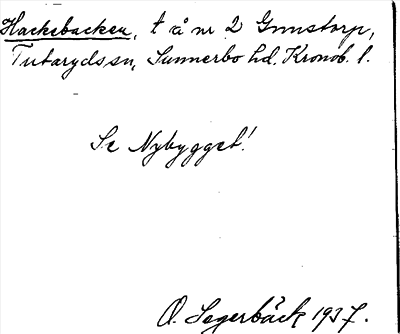 Hackebacken, t å nr 2 Gunstorp,
Tutarydssn, Sunnerbo hd. Kronob. l.
Se Nybygget!
O. Segerbäck 1937.